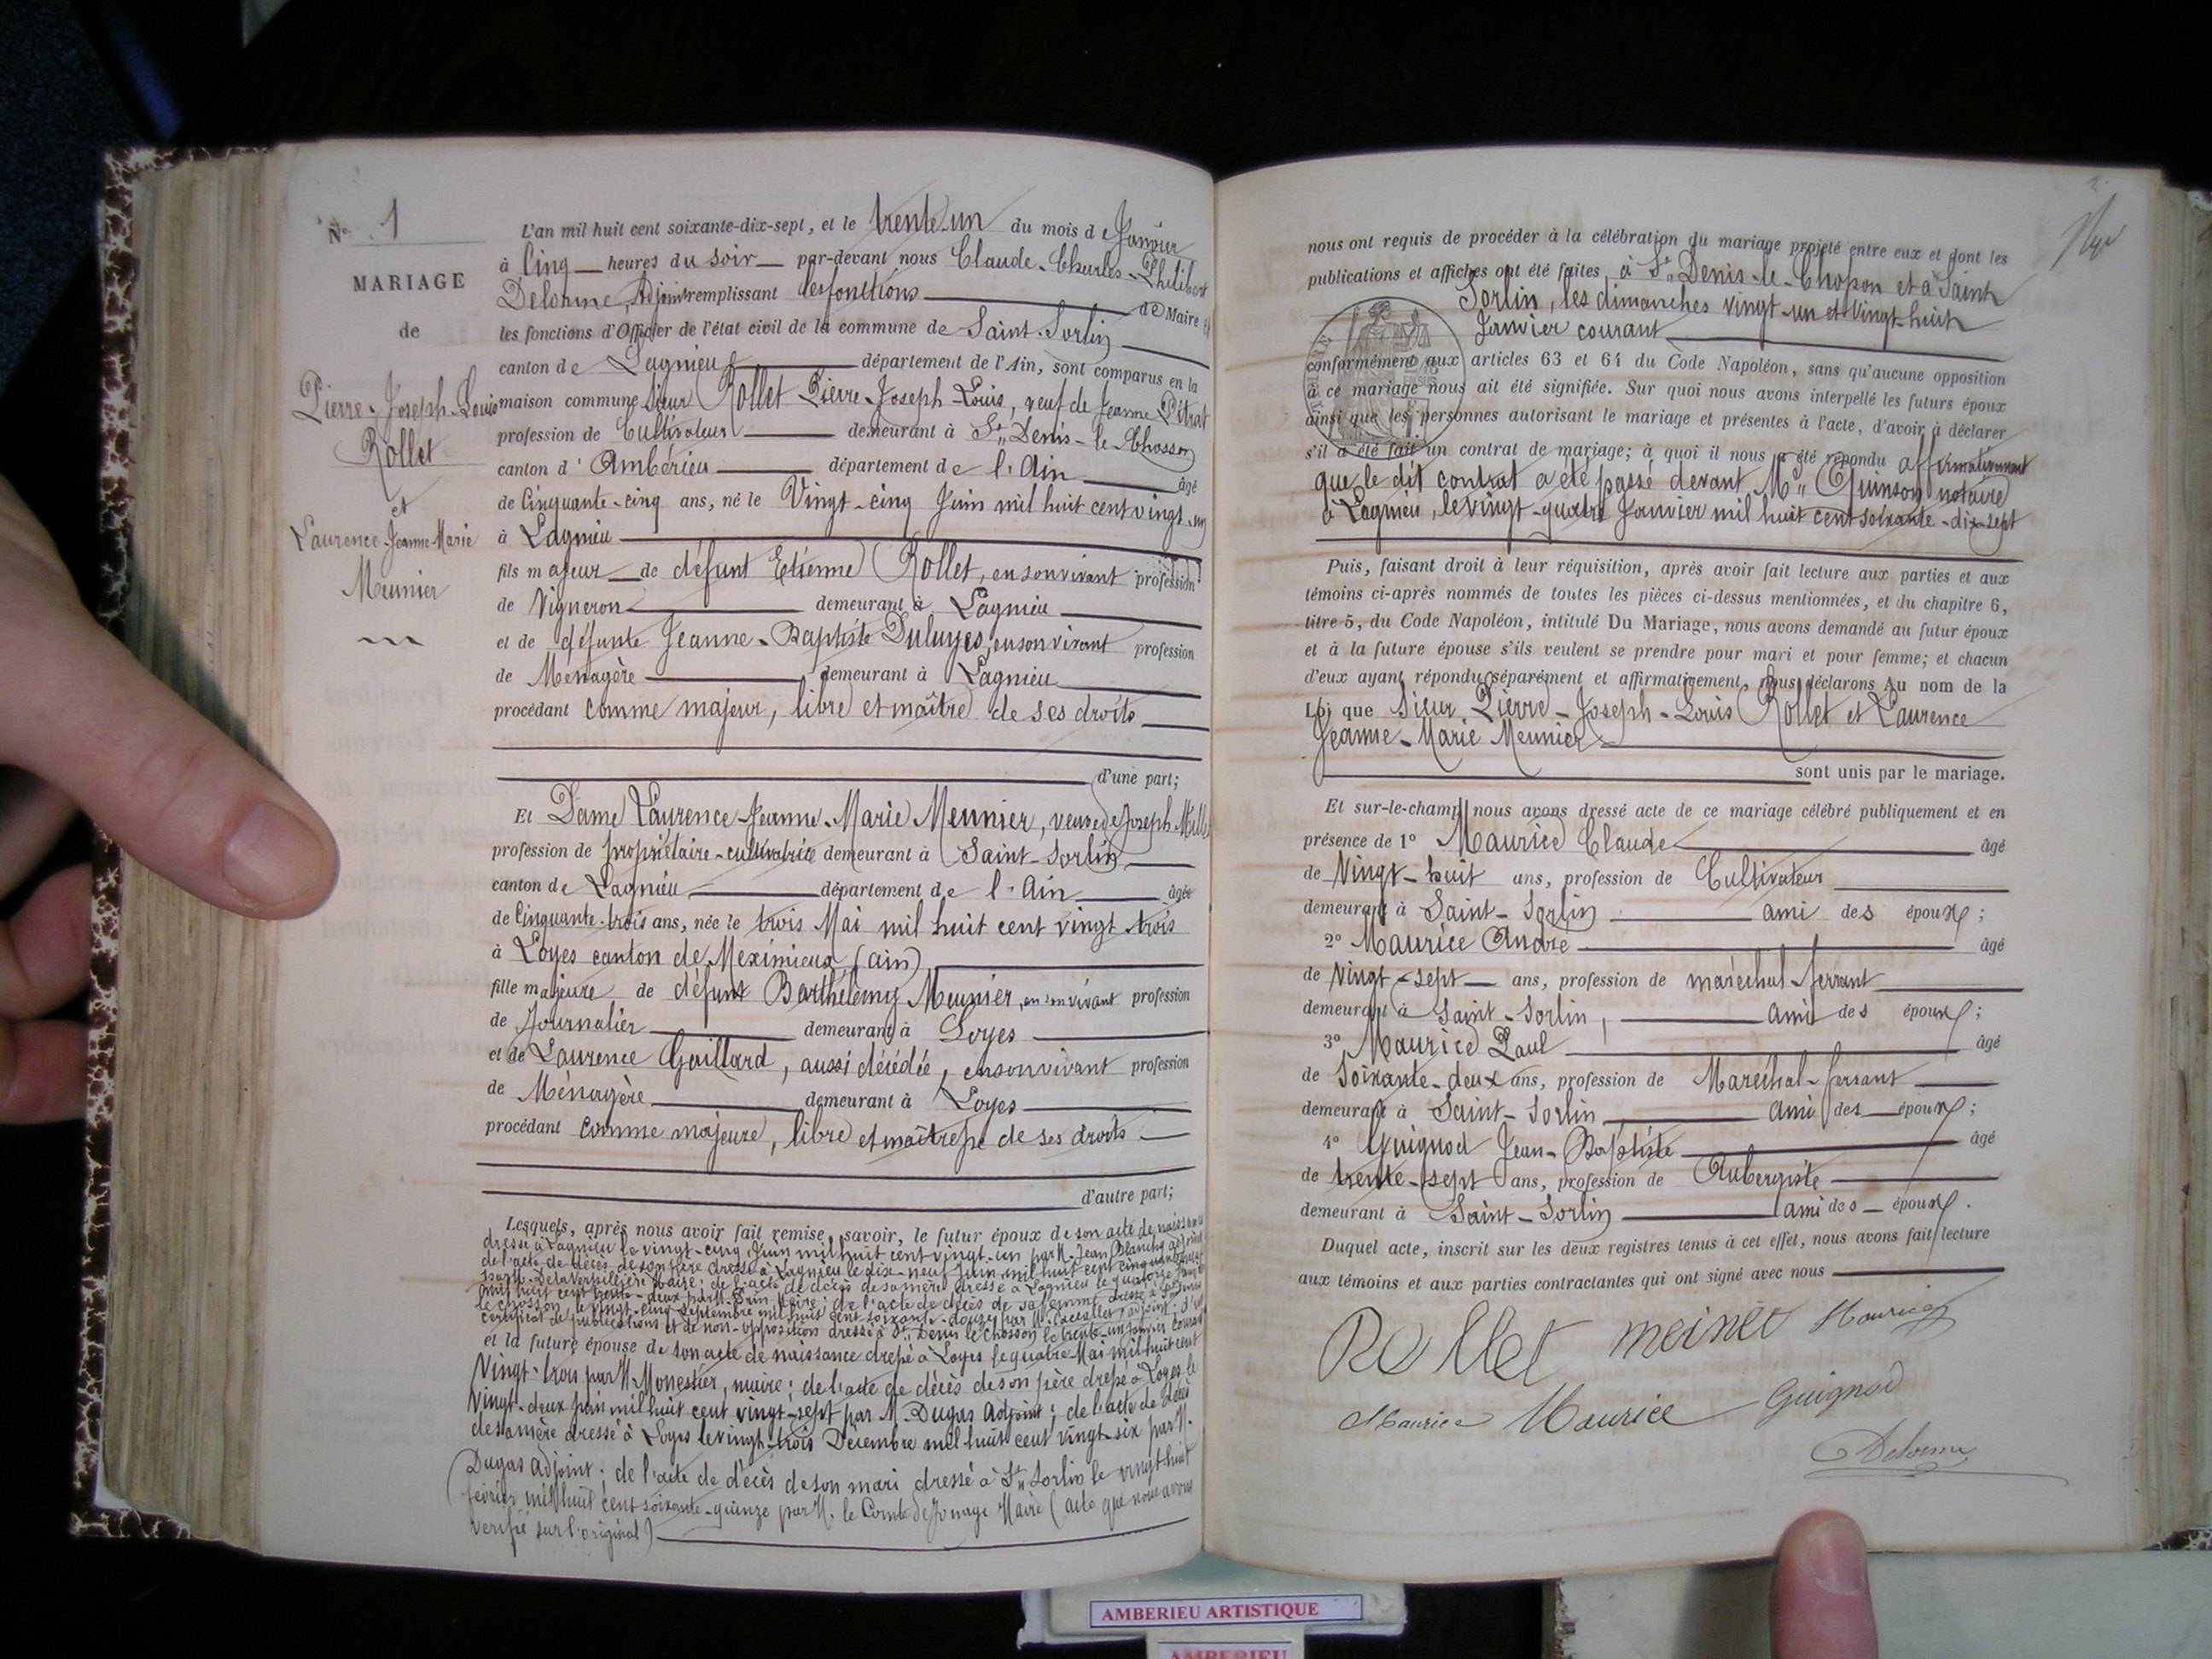 N° 1
MARIAGE
de
Pierre-Joseph-Louis
Rollet
et
Laurence-Jeanne-Marie
Meunier
L'an mil huit cent soixante-dix-sept, et le trente-un du mois de Janvier
à Cinq heures du soir par-devant nous Claude-Charles-Philibert
Delorme, Adjoint remplissant les fonctions de Maire
les fonctions d'Officier de l'état civil de la commune de Saint-Sorlin
canton de Lagnieu département de l'Ain, sont comparus en la
maison commune Sieur Rollet Pierre-Joseph-Louis, veuf de Jeanne Pitrat
profession de Cultivateur demeurant à St Denis-le-Chosson
canton d'Ambérieu département de l'Ain âgé
de Cinquante-cinq ans, né le Vingt-cinq Juin mil huit cent vingt-un
à Lagnieu
fils majeur de défunt Etienne Rollet, en son vivant profession
de Vigneron demeurant à Lagnieu
et de défunte Jeanne-Baptiste Duluyes, en son vivant profession
de Ménagère demeurant à Lagnieu
procédant comme majeur, libre et maître de ses droits
d'une part;
Et Dame Laurence-Jeanne-Marie Meunier, veuve de Joseph
profession de propriétaire-cultivatrice demeurant à Saint-Sorlin
canton de Lagnieu département de l'Ain âgée
de Cinquante-trois ans, née le trois Mai mil huit cent vingt-trois
à Loyes canton de Meximieux (ain)
fille majeure de défunt Barthélemy Meunier, en son vivant profession
de Journalier demeurant à Loyes
et de Laurence Gaillard, aussi décédée, en son vivant profession
de Ménagère demeurant à Loyes
procédant comme majeure, libre et maîtresse de ses droits
d'autre part;
Lesquels, après nous avoir fait remise, savoir, le futur époux de son acte de naissance
dressé à Lagnieu le vingt-cinq Juin mil huit cent vingt-un par M. Jean Blanchy adjoint
de l'acte de décès de son père dressé à Lagnieu le dix-neuf Juin mil huit cent cinquante
par M. Delaverpillière Maire; de l'acte de décès de sa mère dressé à Lagnieu le quatorze
mil huit cent trente-deux par M. Maire; de l'acte de décès de sa femme dressé à St Denis
le Chosson le vingt-cinq Septembre mil huit cent soixante-douze par M. adjoint; d'un
certificat de publications et de non-opposition dressé à St Denis le Chosson le trente-un janvier courant
et la future épouse de son acte de naissance dressé à Loyes le quatre Mai mil huit cent
Vingt-trois par M. Monestier, maire; de l'acte de décès de son père dressé à Loyes le
Vingt-deux juin mil huit cent vingt-sept par M. Dugas Adjoint; de l'acte de décès
de sa mère dressé à Loyes le vingt-trois Décembre mil huit cent vingt-six par M.
Dugas Adjoint; de l'acte de décès de son mari dressé à St Sorlin le vingt-huit
février mil huit cent soixante-quinze par M. le Comte de Jonage Maire (acte que nous avons
vérifié sur l'original)
2.
nous ont requis de procéder à la célébration du mariage projeté entre eux et dont les
publications et affiches ont été faites, à St Denis-le-Choson et à Saint
Sorlin, les dimanches vingt-un et Vingt-huit
Janvier courant
conformément aux articles 63 et 64 du Code Napoléon, sans qu'aucune opposition
à ce mariage nous ait été signifiée. Sur quoi nous avons interpellé les futurs époux
ainsi que les personnes autorisant le mariage et présentes à l'acte, d'avoir à déclarer
s'il a été fait un contrat de mariage; à quoi il nous a été répondu affirmativement
que le dit contrat a été passé devant Me Quinson notaire
à Lagnieu, le vingt-quatre Janvier mil huit cent soixante-dix-sept
Puis, faisant droit à leur réquisition, après avoir fait lecture aux parties et aux
témoins ci-après nommés de toutes les pièces ci-dessus mentionnées, et du chapitre 6,
titre 5, du Code Napoléon, intitulé Du Mariage, nous avons demandé au futur époux
et à la future épouse s'ils veulent se prendre pour mari et pour femme; et chacun
d'eux ayant répondu séparément et affirmativement, nous déclarons Au nom de la
Loi que Sieur Pierre-Joseph-Louis Rollet et Laurence
Jeanne-Marie Meunier
sont unis par le mariage.
Et sur-le-champ nous avons dressé acte de ce mariage célébré publiquement et en
présence de 1° Maurice Claude âgé
de Vingt-huit ans, profession de Cultivateur
demeurant à Saint-Sorlin ami des époux;
2° Maurice André âgé
de Vingt-sept ans, profession de maréchal-ferrant
demeurant à Saint-Sorlin, ami des époux;
3° Maurice Paul âgé
de Soixante-deux ans, profession de Maréchal-ferrant
demeurant à Saint-Sorlin ami des époux;
4° Guignod Jean-Baptiste âgé
de trente-sept ans, profession de Aubergiste
demeurant à Saint-Sorlin ami des époux.
Duquel acte, inscrit sur les deux registres tenus à cet effet, nous avons fait lecture
aux témoins et aux parties contractantes qui ont signé avec nous
Rollet meinier Maurice
Maurice Maurice Guignod
Delorme
AMBERIEU ARTISTIQUE
AMBERIEU